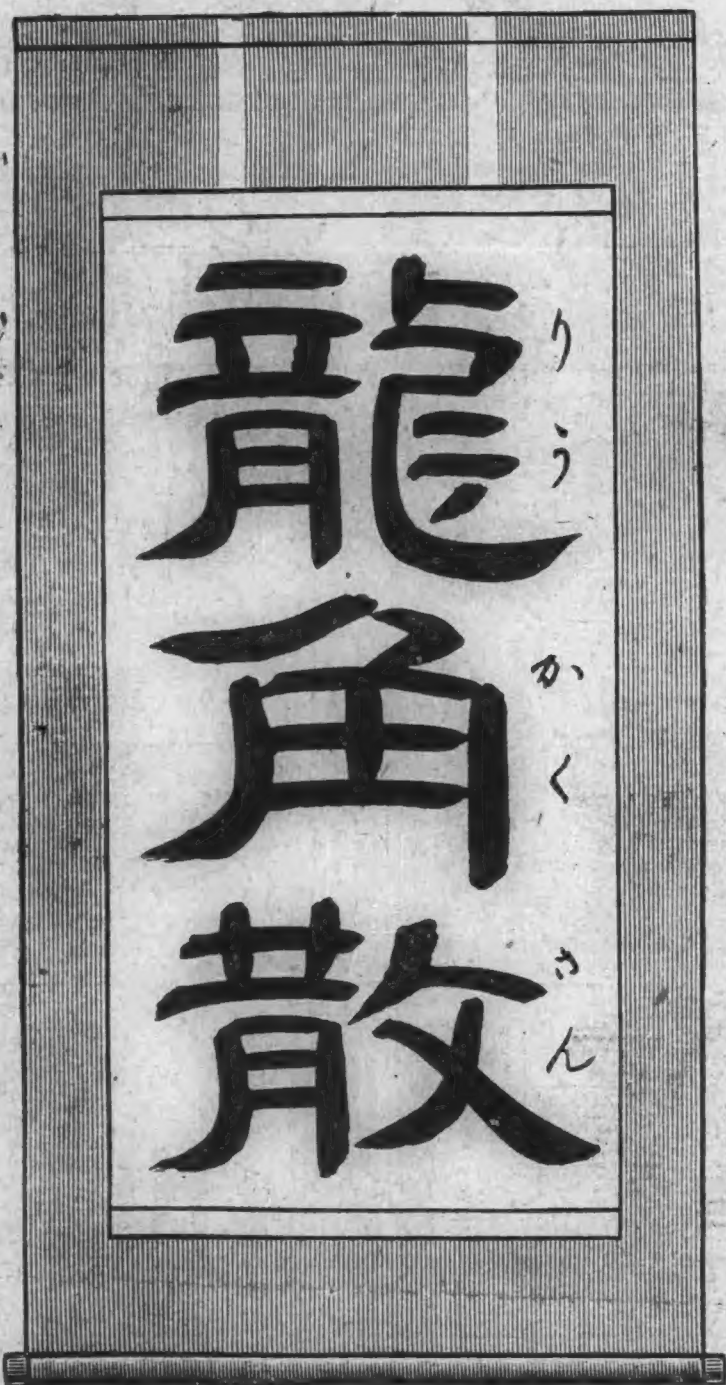 龍角散
りうかくさん